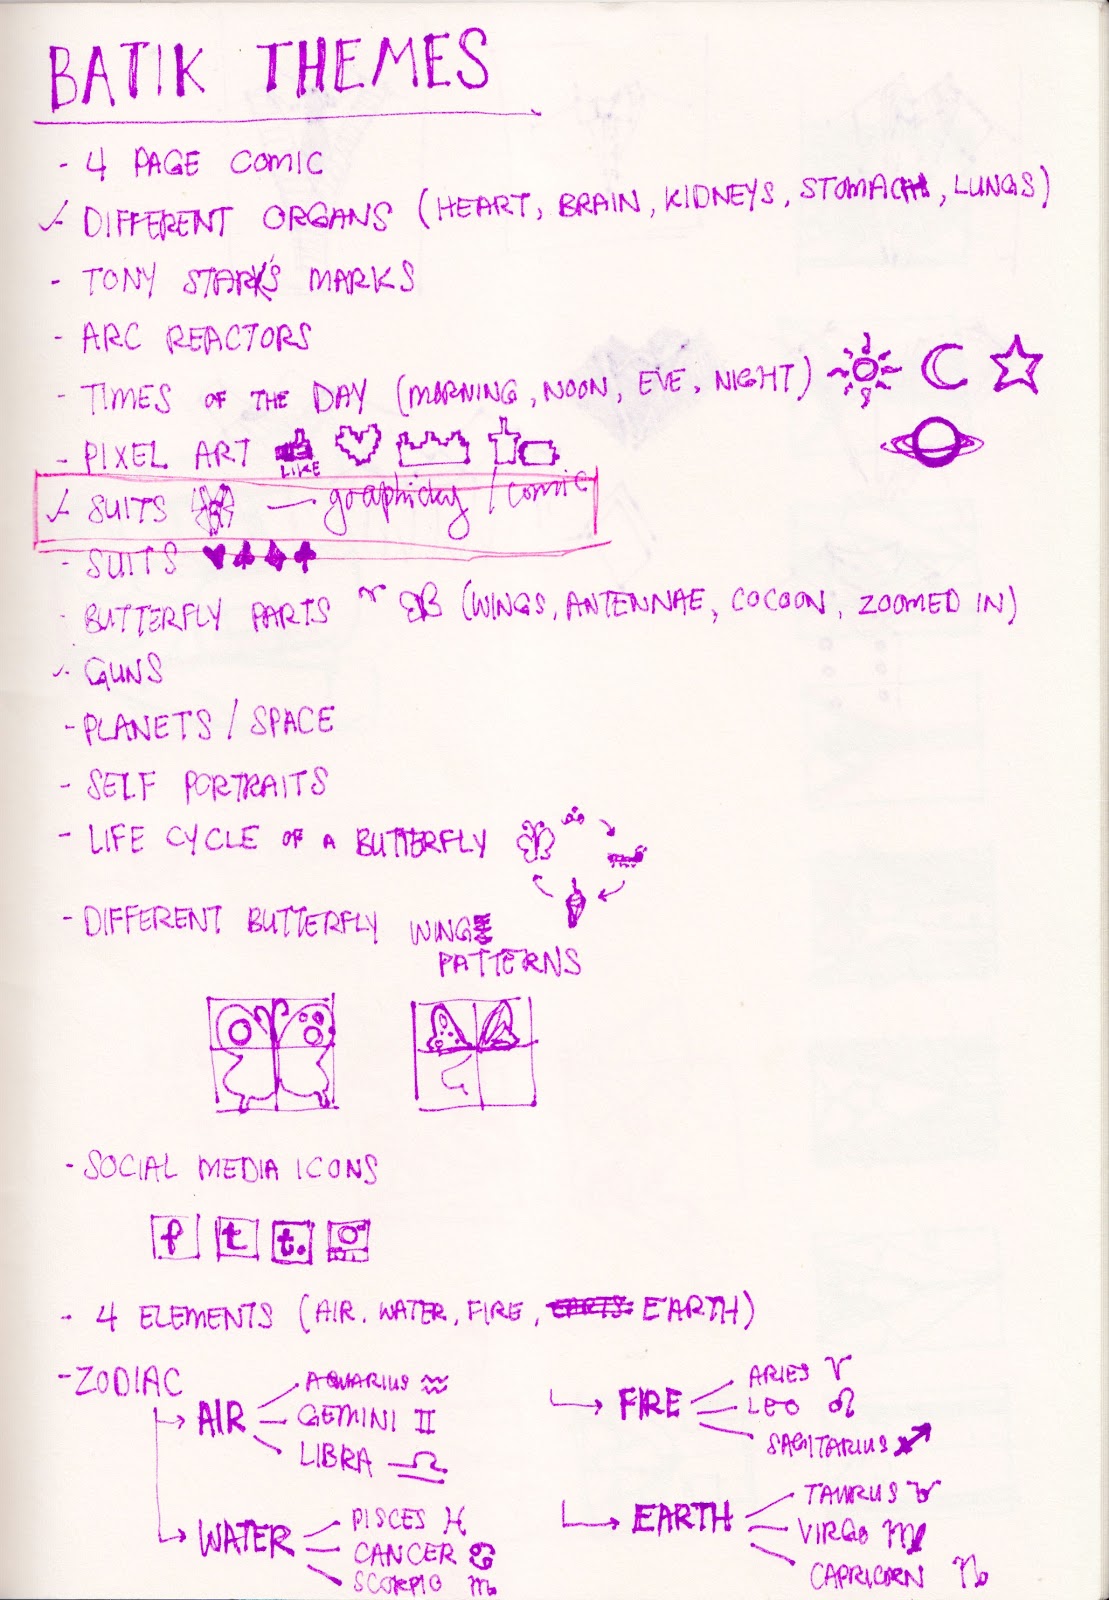 BATIK THEMES
- 4 PAGE COMIC
✓- DIFFERENT ORGANS (HEART, BRAIN, KIDNEYS, STOMACH, LUNGS)
- TONY STARK'S MARKS
- ARC REACTORS
- TIMES OF THE DAY (MORNING, NOON, EVE, NIGHT)
- PIXEL ART
LIKE
✓- SUITS — graphicky / comic
- SUITS ♥ ♠ ♦ ♣
- BUTTERFLY PARTS (WINGS, ANTENNAE, COCOON, ZOOMED IN)
✓- GUNS
- PLANETS / SPACE
- SELF PORTRAITS
- LIFE CYCLE OF A BUTTERFLY
- DIFFERENT BUTTERFLY WING
PATTERNS
- SOCIAL MEDIA ICONS
f t t.
- 4 ELEMENTS (AIR, WATER, FIRE, EARTH)
- ZODIAC
AIR
AQUARIUS ♒
GEMINI ♊
LIBRA ♎
WATER
PISCES ♓
CANCER ♋
SCORPIO ♏
FIRE
ARIES ♈
LEO ♌
SAGITARIUS ♐
EARTH
TAURUS ♉
VIRGO ♍
CAPRICORN ♑